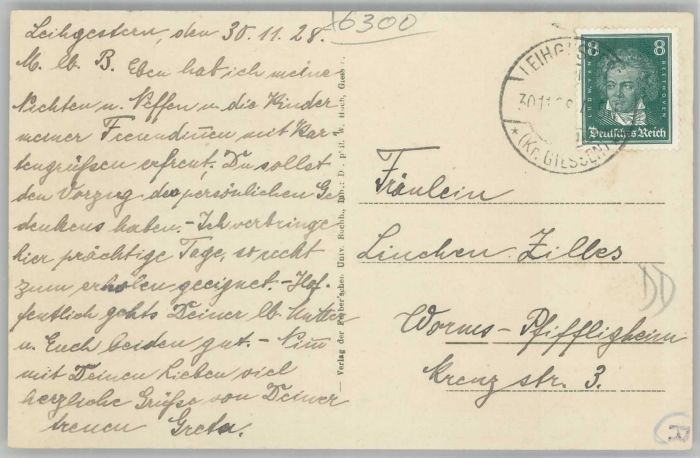 6300
Leihgestern, den 30.11.28.
M. lb. B. Eben hab ich meine
Nichten u. Neffen u. die Kinder
meiner Freundinnen mit Kar-
tengrüßen erfreut. Du sollst
den Vorzug des persönlichen Ge-
denkens haben. - Ich verbringe
hier prächtige Tage, so recht
zum erholen geeignet. - Hof-
fentlich gehts Deiner lb. Mutter
u. Euch beiden gut. - Nim
mit Deinen Lieben viel
herzliche Grüße von Deiner
treuen Greta.
— Verlag der Ferber'schen Univ. Buchh., Inh.: D. phil. W. Hoch, Giessen
LEIHGESTERN
30.11.28
* (Kr. GIESSEN)
8 8
LUDWIG VAN BEETHOVEN
Deutsches Reich
Fräulein
Linchen Zilles
Worms-Pfiffligheim
Kreuzstr. 3.